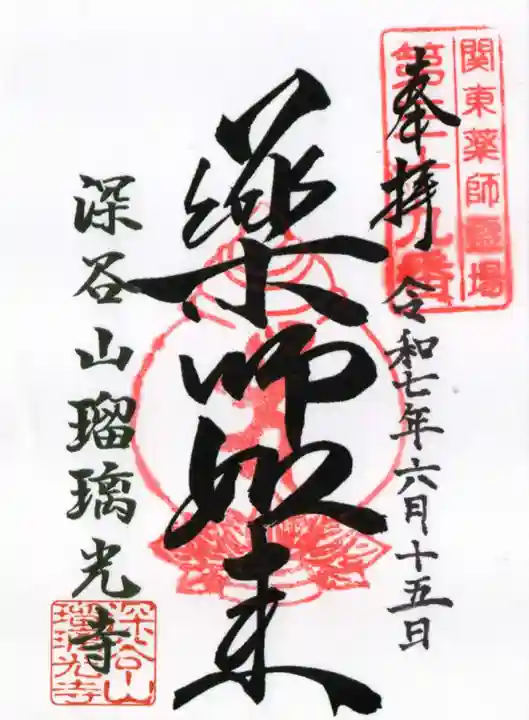 関東薬師霊場
奉拝
令和七年六月十五日
薬師如来
深谷山瑠璃光寺
深谷山
瑠璃光寺